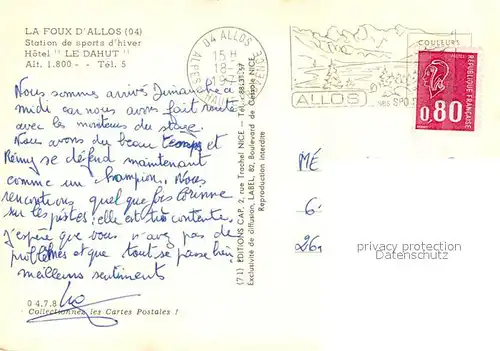 LA FOUX D'ALLOS (04)
Station de sports d'hiver
Hôtel " LE DAHUT "
Alt. 1.800 - - Tél. 5
04 ALLOS
15 H
18-2
197
ALPES
PROVENCE
COULEURS
ALLOS
SES SPO
REPUBLIQUE FRANÇAISE
0,80
Nous sommes arrivés Dimanche à
midi car nous avons fait route
avec les moniteurs du stage.
Nous avons du beau temps et
Rémy se défend maintenant
comme un champion. Nous
rencontrons quelquefois Corinne
sur les pistes: elle est très contente.
J'espère que vous n'avez pas de
problèmes et que tout se passe bien
meilleurs sentiments
(71) EDITIONS CAP, 2, rue Trachel NICE - Tél. : 88-31-57
Exclusivité de diffusion, LABEL, 82, Boulevard de Cessole NICE
Reproduction interdite
ME
6
261
privacy protection
Datenschutz
04.7.8
Collectionnez les Cartes Postales !